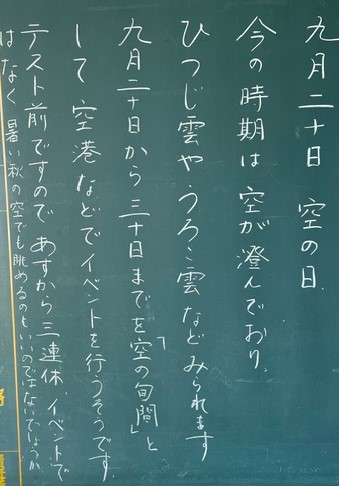 九月二十日 空の日
今の時期は空が澄んでおり、
ひつじ雲やうろこ雲などみられます
九月二十日から三十日までを「空の旬間」と
して空港などでイベントを行うそうです。
テスト前ですので あすから三連休、イベントで
はなく暑い秋の空でも眺めるのもいいのではないでしょうか